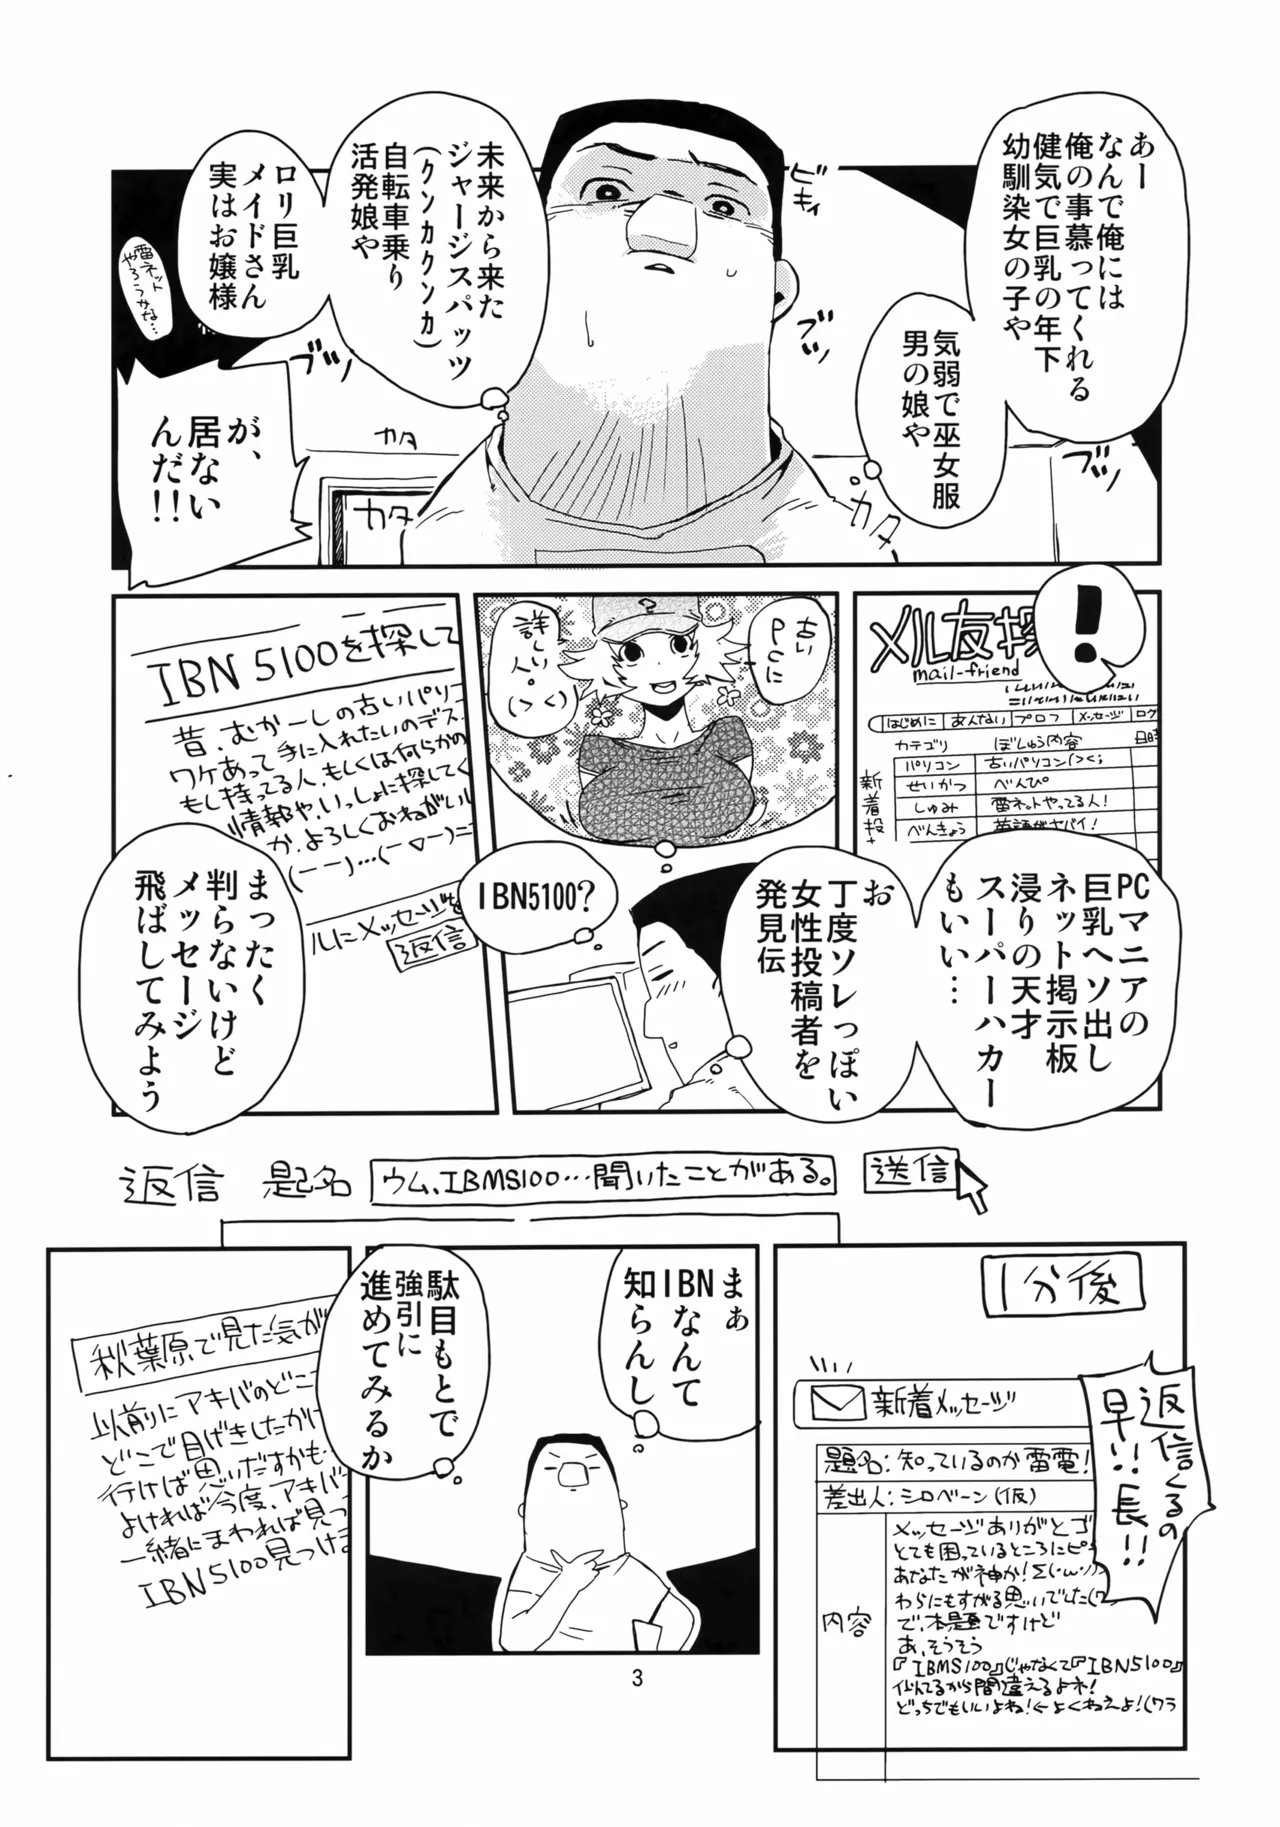 あー
なんで俺には
俺の事慕ってくれる
健気で巨乳の年下
幼馴染女の子や
気弱で巫女服
男の娘や
ビキィ
ブツ
ブツ
未来から来た
ジャージスパッツ
(クンカクンカ)
自転車乗り
活発娘や
ロリ巨乳
メイドさん
実はお嬢様
雷ネット
やろうかな…
が、
居ない
んだ!!
カタ
カタ
カタ
カタ
!
メル友探
mail-friend
はじめに
あんない
プロフ
メッセージ
ログ
カテゴリ
ぼしゅう内容
日時
新着投
パソコン
古いパソコン(><;
せいかつ
べんぴ
しゅみ
雷ネットやってる人!
べんきょう
英語がヤバイ!
PCマニアの
巨乳ヘソ出し
ネット掲示板
浸りの天才
スーパーハカー
もいい…
古い
PCに
詳しい
人。
(><)
お
丁度ソレっぽい
女性投稿者を
発見伝
IBN5100?
IBN5100を探して
昔、むかーしの古いパソコ
ワケあって手に入れたいのデス。
もし持ってる人、もしくは何らかの
情報や、いっしょに探してく
か、よろしくおねがいし
(ーー)…(ー▽ー)ニ
ルにメッセージを
返信
まったく
判らないけど
メッセージ
飛ばしてみよう
返信
題名
ウム、IBM5100…聞いたことがある。
送信
1分後
新着メッセージ
題名:知っているのか雷電!
差出人:シロベーン(仮)
内容
メッセージありがとゴ
とても困っているところにピ
あなたが神か!Σ(・ω・ﾉ)ﾉ
わらにもすがる思いでした(ワ
で、本題ですけど
あ、そうそう
『IBM5100』じゃなくて『IBN5100』
似てるから間違えるよネ!
どっちでもいいよね!←よくねえよ!(ワラ
返信くるの
早!!長!!
まぁ
IBNなんて
知らんし
駄目もとで
強引に
進めてみるか
秋葉原で見た気が
以前にアキバのどこ
どこで目げきしたかけ
行けば思いだすかも、
よければ今度、アキバ
一緒にまわれば見つ
IBN5100見つけま
3